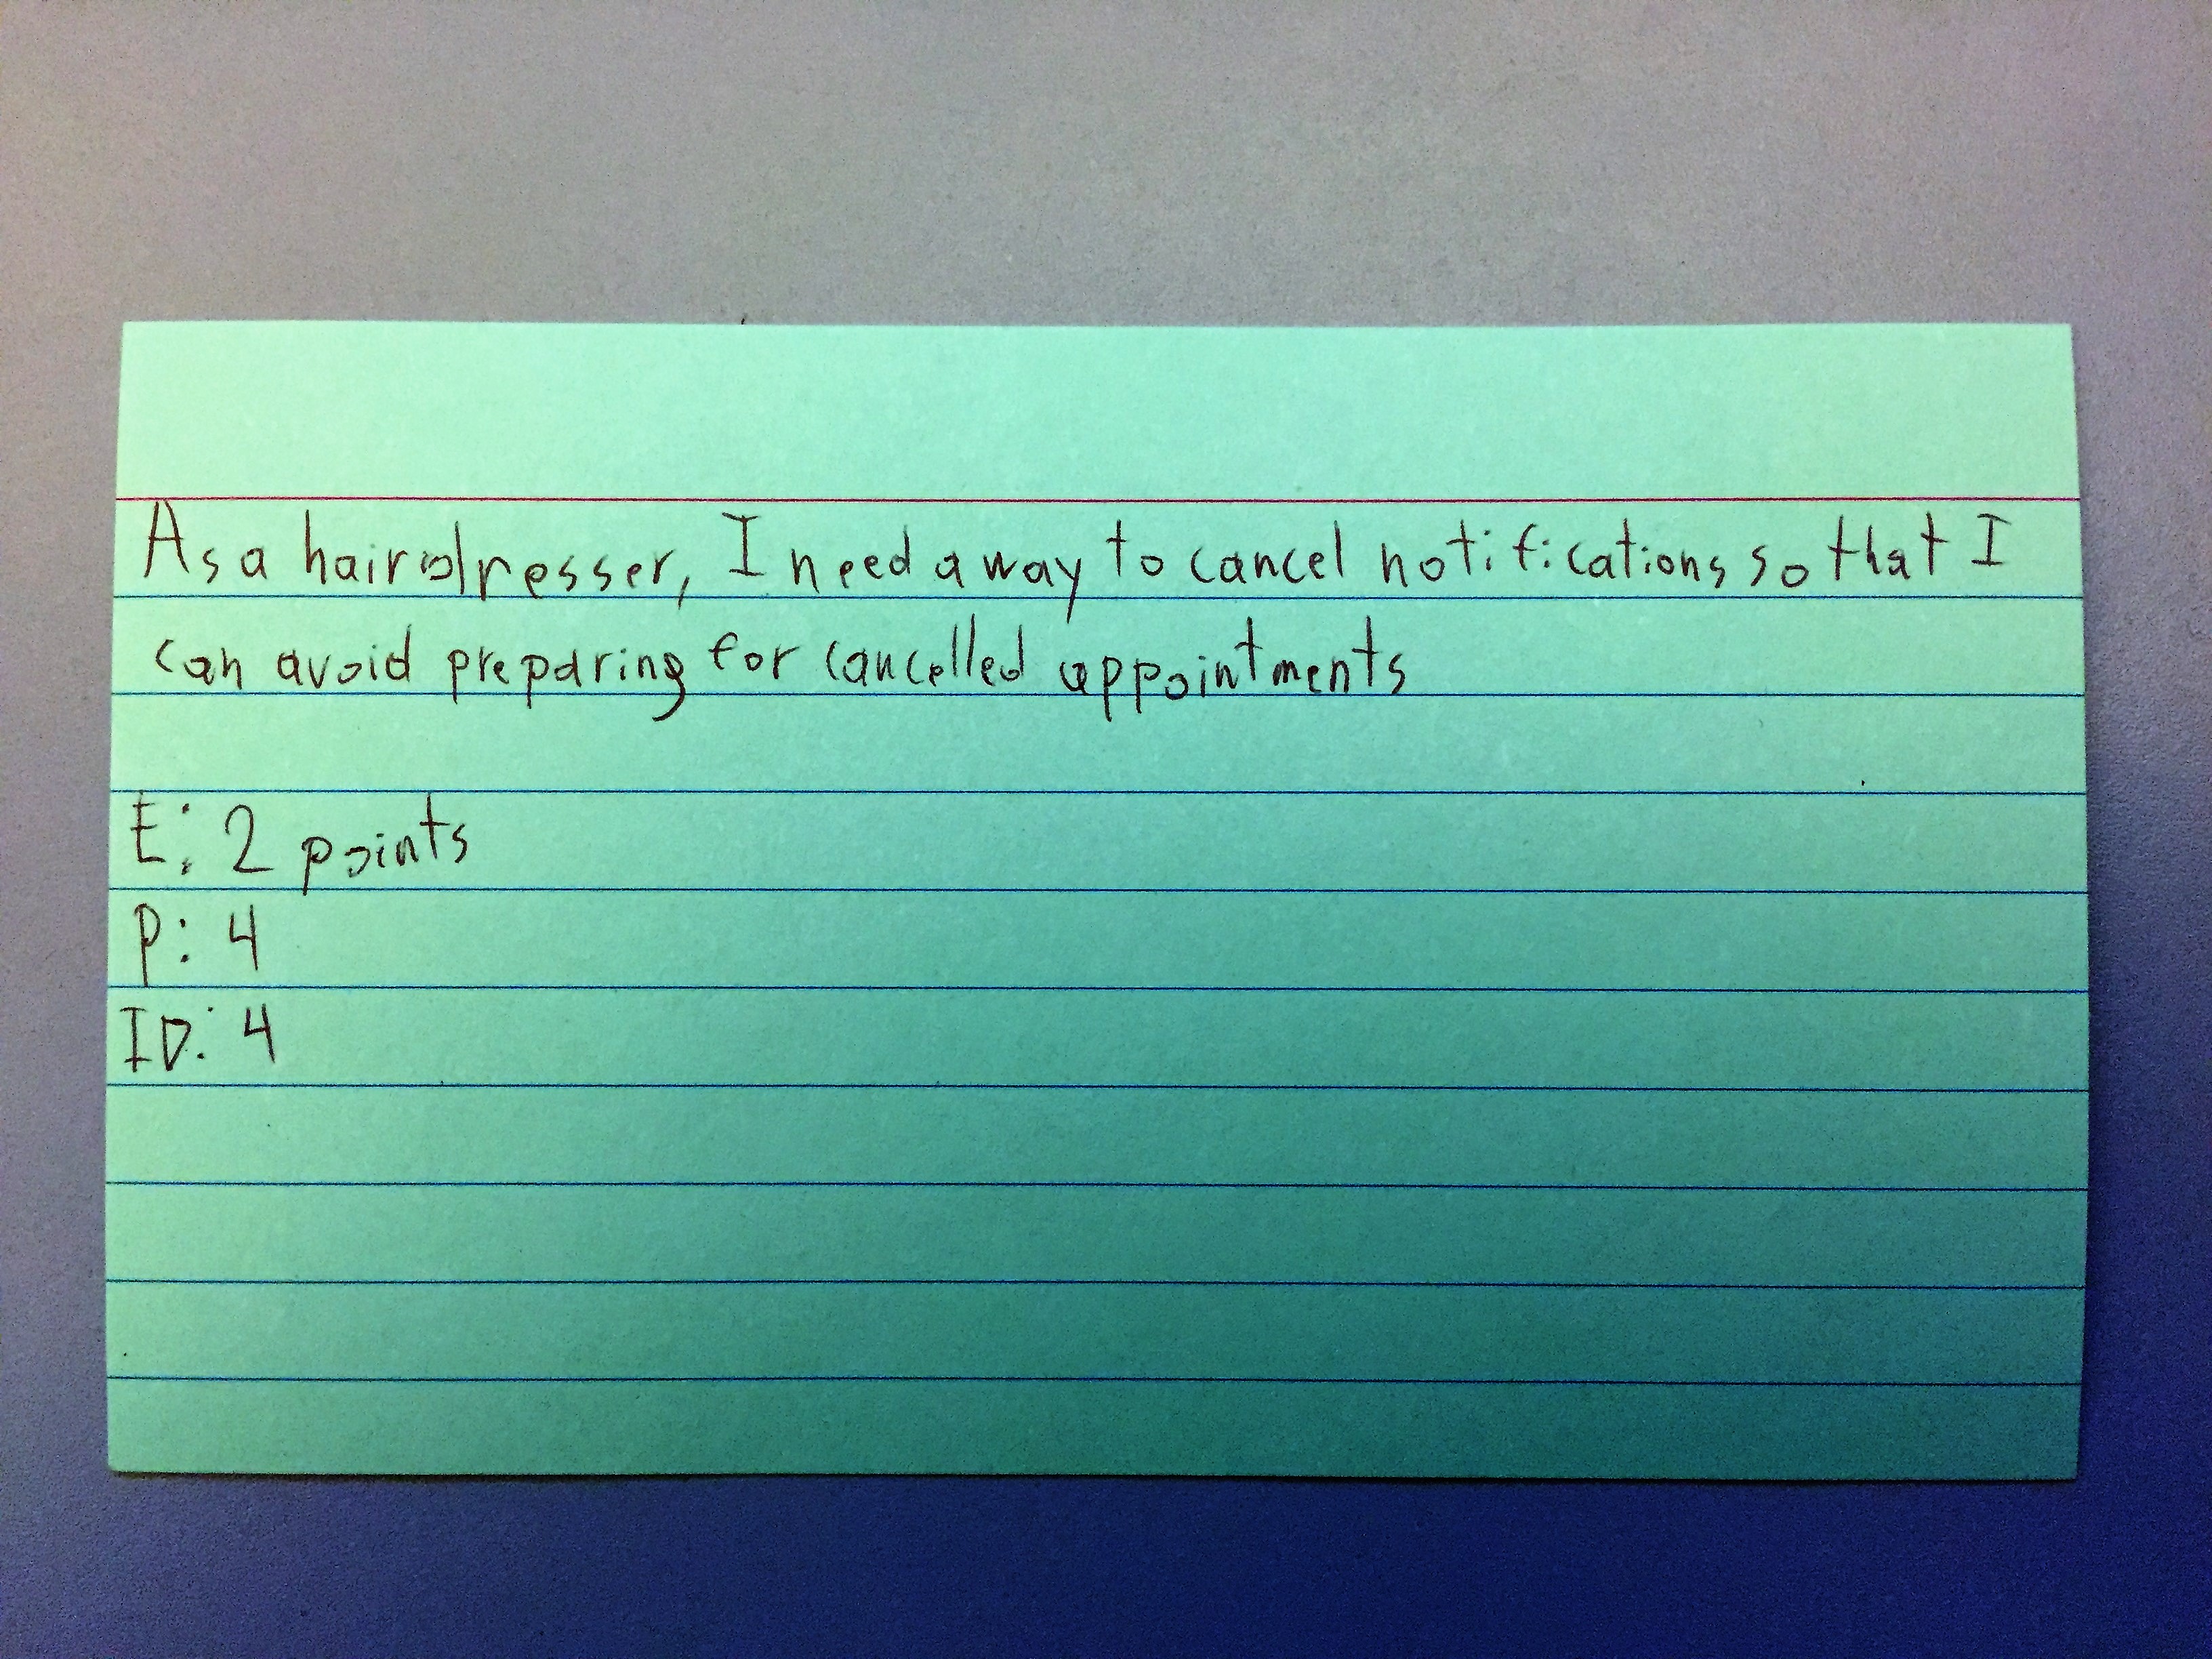 As a hairdresser, I need a way to cancel notifications so that I
can avoid preparing for cancelled appointments
E: 2 points
P: 4
ID: 4